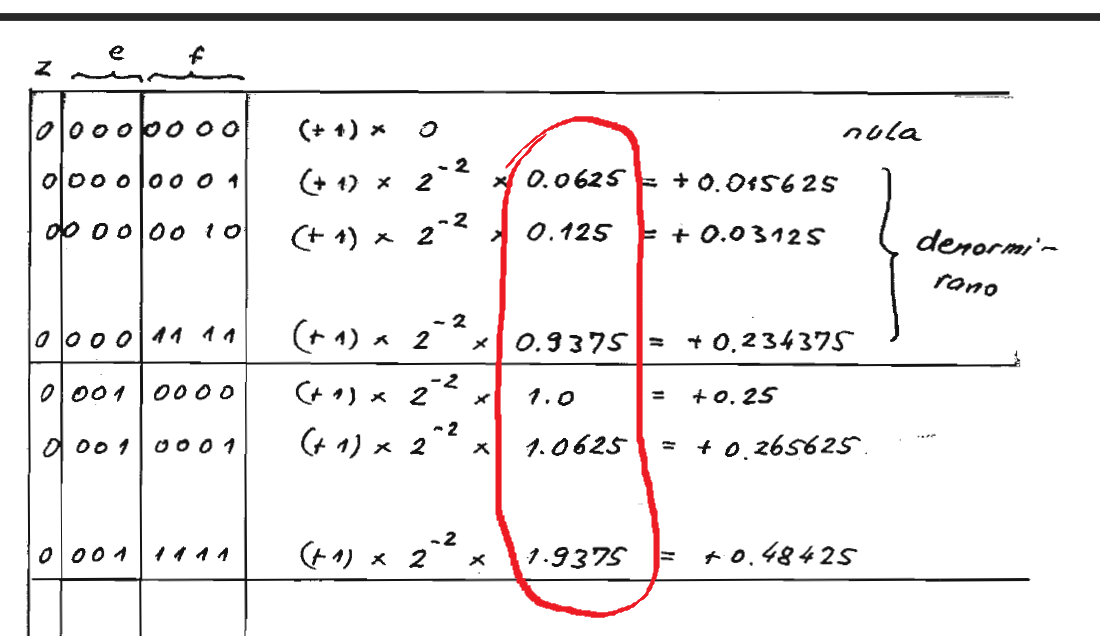 z e f
0 000 0000 (+1) × 0 nula
0 000 0001 (+1) × 2^-2 × 0.0625 = +0.015625
0 000 0010 (+1) × 2^-2 × 0.125 = +0.03125
denormi-
rano
0 000 1111 (+1) × 2^-2 × 0.9375 = +0.234375
0 001 0000 (+1) × 2^-2 × 1.0 = +0.25
0 001 0001 (+1) × 2^-2 × 1.0625 = +0.265625
0 001 1111 (+1) × 2^-2 × 1.9375 = +0.48425